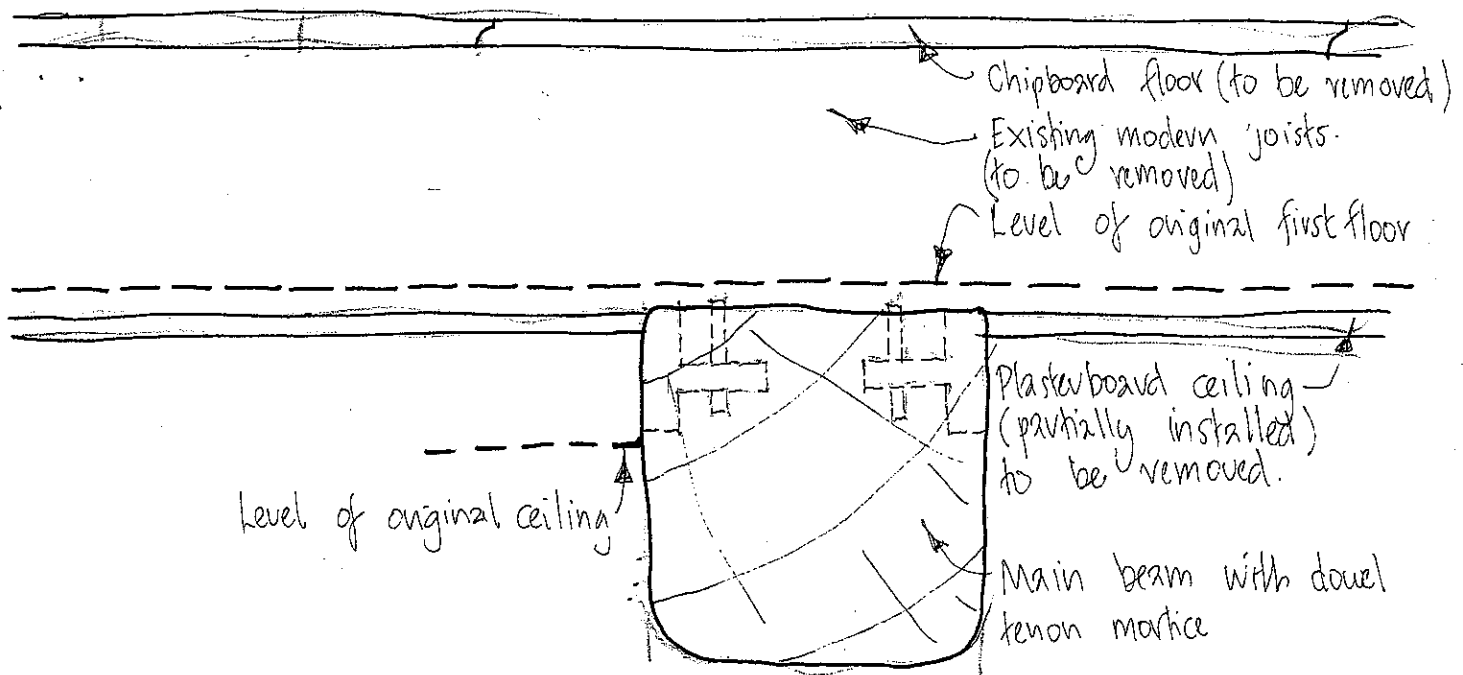 Chipboard floor (to be removed)
Existing modern joists.
(to be removed)
Level of original first floor
Plasterboard ceiling
(partially installed)
to be removed.
Level of original ceiling
Main beam with dowel
tenon mortice